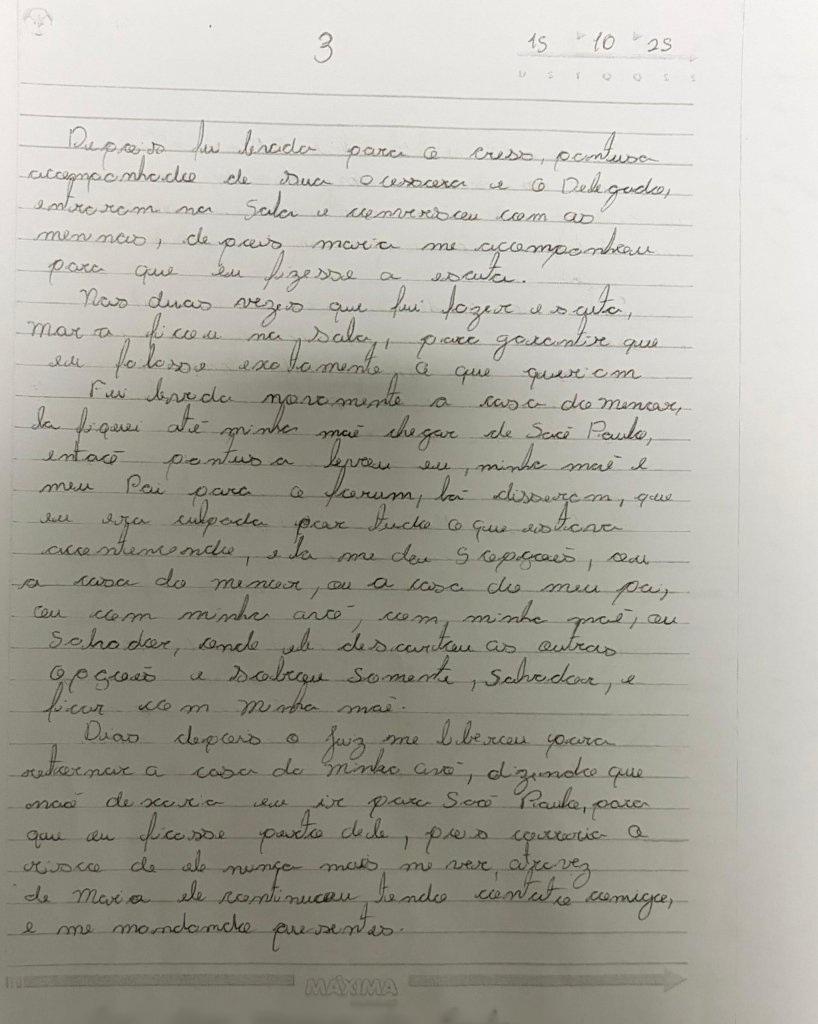 3
15 10 25
D S T Q Q S S
Depois fui levada para o creas, pantusa
acompanhado de sua acessora e o Delegado,
entraram na Sala e conversou com as
meninas, depois maria me acompanhou
para que eu fizesse a escuta.
Nas duas vezes que fui fazer escuta,
Maria ficou na sala, para garantir que
eu falasse exatamente o que queriam
Fui levada novamente a casa do menor,
la fiquei até minha maê chegar de Saõ Paulo,
entaõ pantusa levou eu, minha maê e
meu Pai para o forum, lá disseram, que
eu era culpada por tudo o que estava
acontencendo, ela me deu 5 opçoẽs, ou
a casa do menor, ou a casa do meu pai,
ou com minha avó, com minha maê, ou
Salvador, onde ele descartou as outras
opçoẽs e sobrou somente, Salvador, e
ficar com minha maê.
Dias depois o Juiz me liberou para
retornar a casa da minha avó, dizendo que
naõ deixaria eu ir para Saõ Paulo, para
que eu ficasse perto dele, pois correria o
risco de ele nunca mais me ver, atravez
de Maria ele continuou tendo contato comigo,
e me mandando presentes.
MÁXIMA